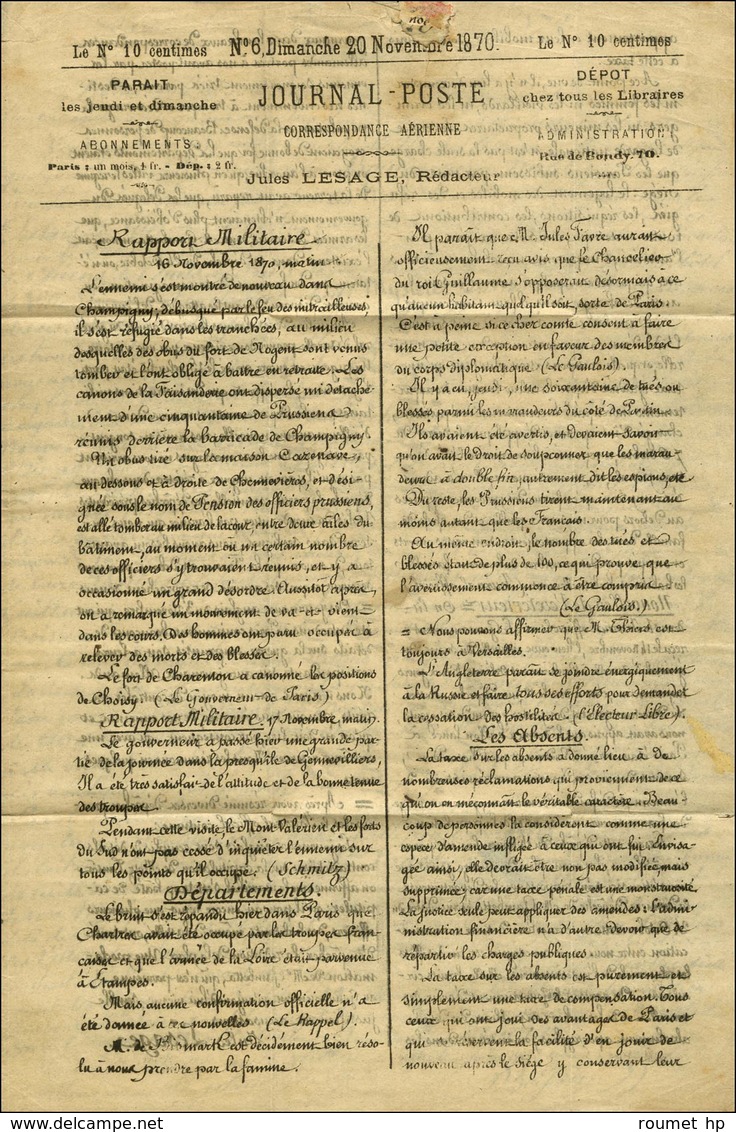 Le N° 10 centimes N° 6, Dimanche 20 Novembre 1870. Le N° 10 centimes
PARAIT
les jeudi et dimanche
ABONNEMENTS:
Paris: un mois, 1 fr. - Dép.: 2 fr.
JOURNAL-POSTE
CORRESPONDANCE AÉRIENNE
Jules LESAGE, Rédacteur
DÉPOT
chez tous les Libraires
ADMINISTRATION
Rue de Bondy, 70.
Rapport Militaire
16 Novembre 1870, matin
L'ennemi s'est montré de nouveau dans
Champigny; débusqué par le feu des mitrailleuses,
il s'est réfugié dans les tranchées, au milieu
desquelles des obus du fort de Nogent sont venus
tomber et l'ont obligé à battre en retraite. Les
canons de la Faisanderie ont dispersé un détache-
ment d'une cinquantaine de Prussiens
réunis derrière la barricade de Champigny.
Un obus tiré sur la maison Cazenave,
au dessous et à droite de Chennevières, et dési-
gnée sous le nom de Pension des officiers prussiens,
est allé tomber au milieu de la cour, entre deux ailes du
bâtiment, au moment où un certain nombre
de ces officiers s'y trouvaient réunis, et y a
occasionné un grand désordre. Aussitôt après,
on a remarqué un mouvement de va-et-vient
dans les cours. Des hommes ont paru occupés à
relever des morts et des blessés.
Le fort de Charenton a canonné les positions
de Choisy (Le Gouverneur de Paris)
Rapport Militaire. 17 Novembre, matin.
Le gouverneur a passé hier une grande par-
tie de la journée dans la presqu'île de Gennevilliers,
Il a été très satisfait de l'attitude et de la bonne tenue
des troupes.
Pendant cette visite, le Mont Valérien et les forts
du Sud n'ont pas cessé d'inquiéter l'ennemi sur
tous les points qu'il occupe. (Schmitz)
Départements.
Le bruit s'est répandu hier dans Paris que
Chartres avait été occupé par les troupes fran-
çaises et que l'armée de la Loire était parvenue
à Étampes.
Mais aucune confirmation officielle n'a
été donnée à ces nouvelles (Le Rappel).
M. de Bismark est décidément bien réso-
lu à nous prendre par la famine.
Il paraît que M. Jules Favre aurait
officieusement reçu avis que le Chancelier
du roi Guillaume s'opposerait désormais à ce
qu'aucun habitant, quel qu'il soit, sorte de Paris.
C'est à peine si ce cher comte consent à faire
une petite exception en faveur des membres
du corps diplomatique (Le Gaulois).
Il y a eu, jeudi, une soixantaine de tués ou
blessés parmi les maraudeurs du côté de Pantin.
Ils avaient été avertis, et devaient savoir
qu'on avait le droit de soupçonner que les marau-
deurs à double fin, autrement dit les espions, etc
Du reste, les Prussiens tirent maintenant au
moins autant que les Français.
Au même endroit, le nombre des tués et
blessés étant de plus de 100, ce qui prouve que
l'avertissement commence à être compris
(Le Gaulois.)
= Nous pouvons affirmer que M. Thiers est
toujours à Versailles.
L'Angleterre paraît se joindre énergiquement
à la Russie et faire tous ses efforts pour demander
la cessation des hostilités. (l'Électeur Libre).
Les Absents.
La taxe sur les absents a donné lieu à de
nombreuses réclamations qui proviennent de ce
qu'on en méconnaît le véritable caractère. Beau-
coup de personnes la considèrent comme une
espèce d'amende infligée à ceux qui ont fui. Envisa-
gée ainsi, elle devrait être non pas modifiée, mais
supprimée; car une taxe pénale est une monstruosité.
La justice seule peut appliquer des amendes: l'admi-
nistration financière n'a d'autre devoir que de
répartir les charges publiques.
La taxe sur les absents est purement et
simplement une taxe de compensation. Tous
ceux qui ont joui des avantages de Paris et
qui se réservent la facilité d'en jouir de
nouveau après le siège y conservant leur
roumet hp